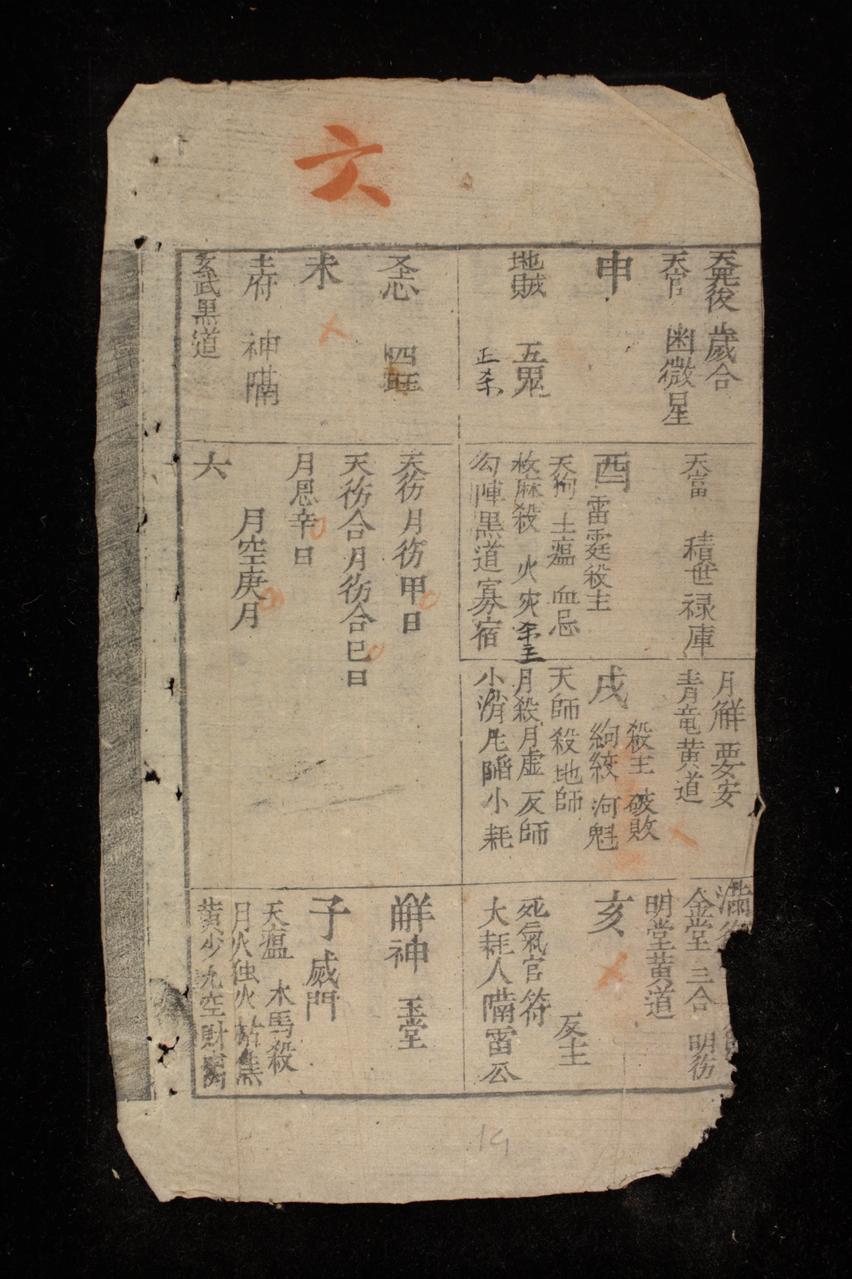 六
天后 歲合
天官 幽微星
申
地賊 五鬼
正杀
四旺
未
土府 神隔
玄武黑道
天富 積世祿庫
酉 雷霆殺主
天狗 土瘟 血忌
披麻殺 火灾杀主
勾陣黑道寡宿
天彷月彷甲日
天彷合月彷合巳日
月恩辛日
月空庚月
六
月觧 要安
青竜黄道
殺主 破敗
戌 絢絞 河魁
天師殺地師
月殺月虚 反師
小消兀陷小耗
滿
金堂 三合 明彷
明堂黄道
亥
反主
死氣官符
大耗人隔雷公
觧神 玉堂
子 威門
天瘟 木馬殺
月火独火
九空財
19